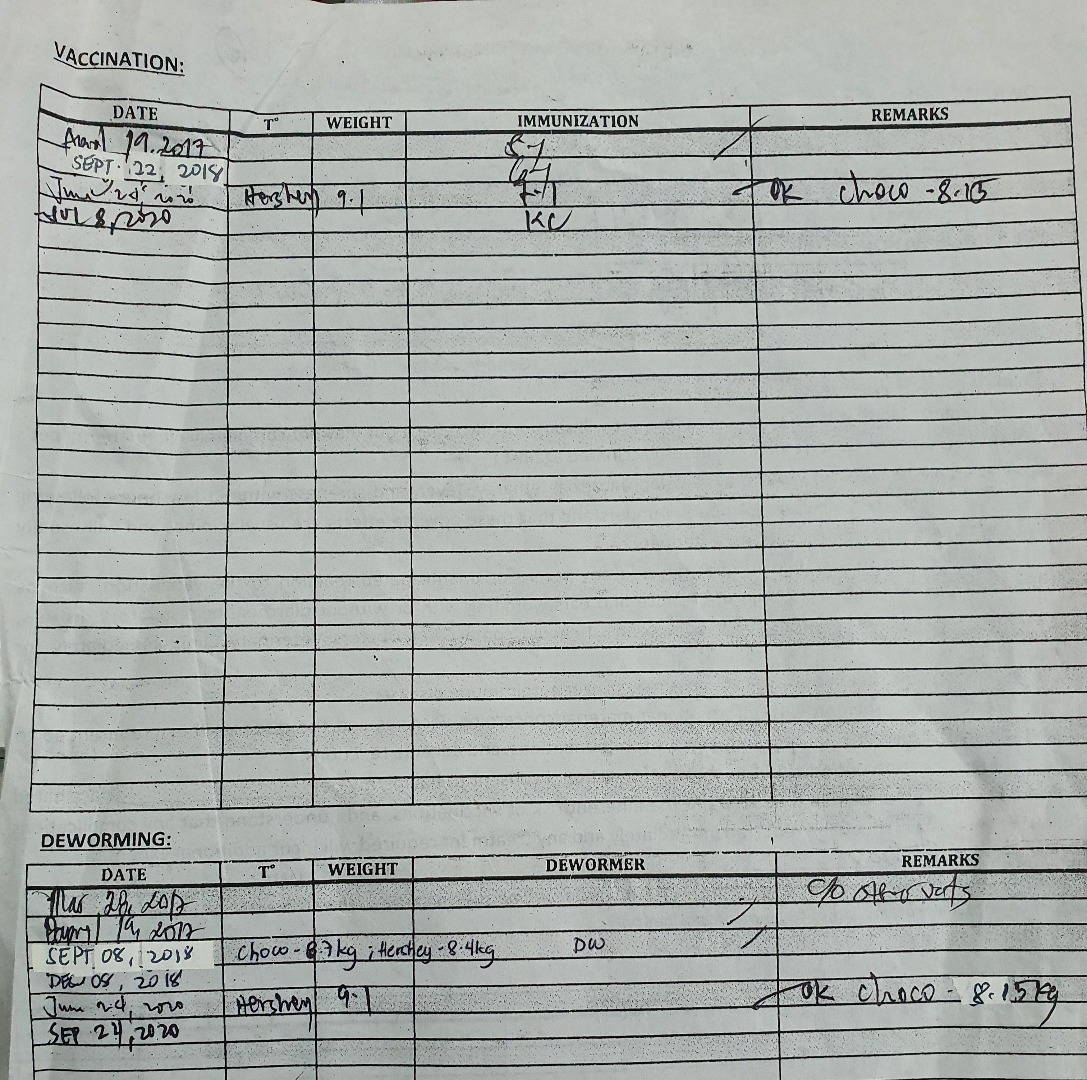 VACCINATION:
DATE T° WEIGHT IMMUNIZATION REMARKS
19, 2017
SEPT. 22, 2018
June 24, 2020 Hershey 9.1 OK choco - 8.15
JUL 8, 2020 KC
DEWORMING:
DATE T° WEIGHT DEWORMER REMARKS
Mar 28, 2017 c/o other vets
April 19, 2017
SEPT 08, 2018 Choco - 8.7kg ; Hershey - 8.4kg DW
DEC 08, 2018
June 24, 2020 Hershey 9.1 OK choco - 8.15kg
SEP 24, 2020